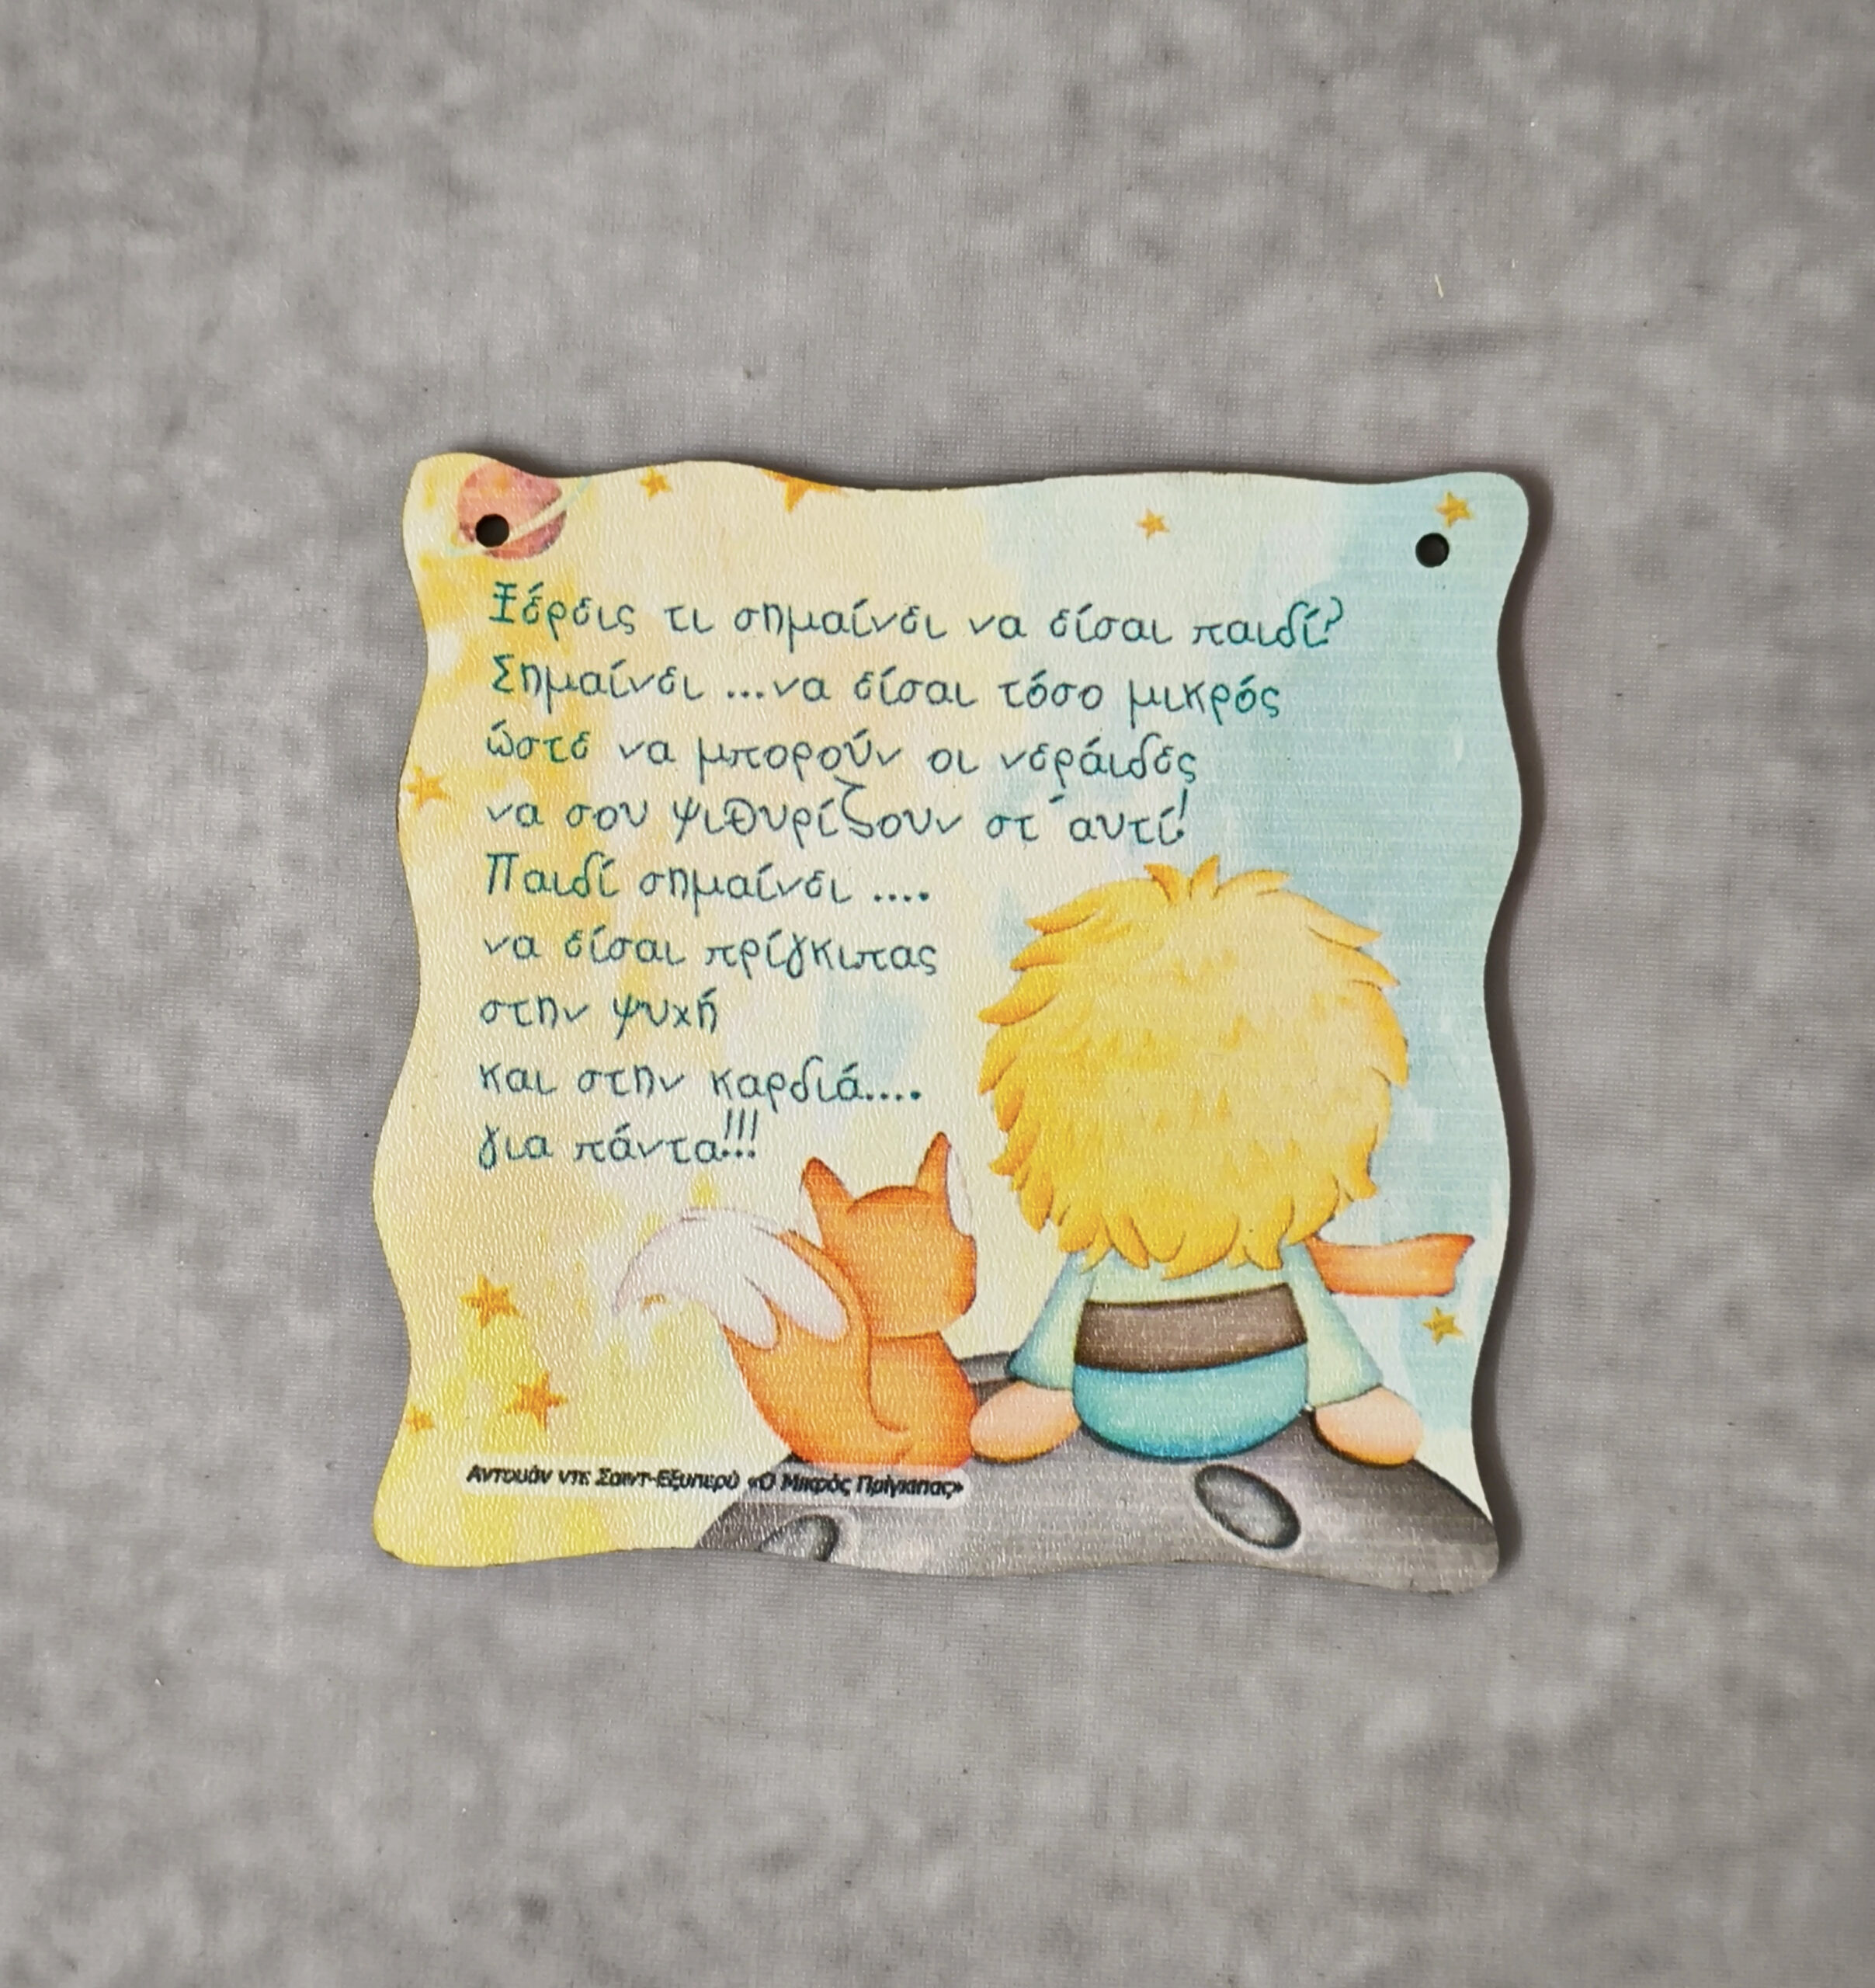 Ξέρεις τι σημαίνει να είσαι παιδί?
Σημαίνει ...να είσαι τόσο μικρός
ώστε να μπορούν οι νεράιδες
να σου ψιθυρίζουν στ΄αυτί!
Παιδί σημαίνει ....
να είσαι πρίγκιπας
στην ψυχή
και στην καρδιά....
για πάντα!!!
Αντουάν ντε Σαιντ-Εξυπερύ «Ο Μικρός Πρίγκιπας»